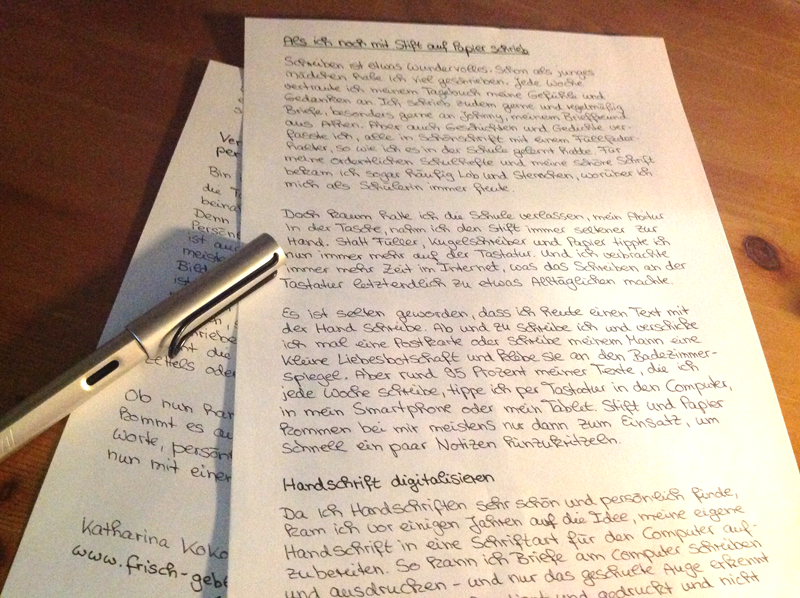 Als ich noch mit Stift auf Papier schrieb
Schreiben ist etwas Wundervolles. Schon als junges
Mädchen habe ich viel geschrieben. Jede Woche
vertraute ich meinem Tagebuch meine Gefühle und
Gedanken an. Ich schrieb zudem gerne und regelmäßig
Briefe, besonders gerne an Johnny, meinem Brieffreund
aus Athen. Aber auch Geschichten und Gedichte ver-
fasste ich, alle in Schönschrift mit einem Füllfeder-
halter, so wie ich es in der Schule gelernt hatte. Für
meine ordentlichen Schulhefte und meine schöne Schrift
bekam ich sogar häufig Lob und Sternchen, worüber ich
mich als Schülerin immer freute.
Doch kaum hatte ich die Schule verlassen, mein Abitur
in der Tasche, nahm ich den Stift immer seltener zur
Hand. Statt Füller, Kugelschreiber und Papier tippte ich
nun immer mehr auf der Tastatur. Und ich verbrachte
immer mehr Zeit im Internet, was das Schreiben an der
Tastatur letztendlich zu etwas Alltäglichen machte.
Es ist selten geworden, dass ich heute einen Text mit
der Hand schreibe. Ab und zu schreibe ich und verschicke
ich mal eine Postkarte oder schreibe meinem Mann eine
kleine Liebesbotschaft und klebe sie an den Badezimmer-
spiegel. Aber rund 95 Prozent meiner Texte, die ich
jede Woche schreibe, tippe ich per Tastatur in den Computer,
in mein Smartphone oder mein Tablet. Stift und Papier
kommen bei mir meistens nur dann zum Einsatz, um
schnell ein paar Notizen hinzukritzeln.
Handschrift digitalisieren
Da ich Handschriften sehr schön und persönlich finde,
kam ich vor einigen Jahren auf die Idee, meine eigene
Handschrift in eine Schriftart für den Computer auf-
zubereiten. So kann ich Briefe am Computer schreiben
und ausdrucken – und nur das geschulte Auge erkennt
und gedruckt und nicht
Ver
per
Bin
die
beina
Denn
Persön
ist auc
meist
Bild
ist
die
zettels ode
Ob nun han
kommt es au
Worte, persön
nun mit einer
Katharina Koko
www.frisch-geb